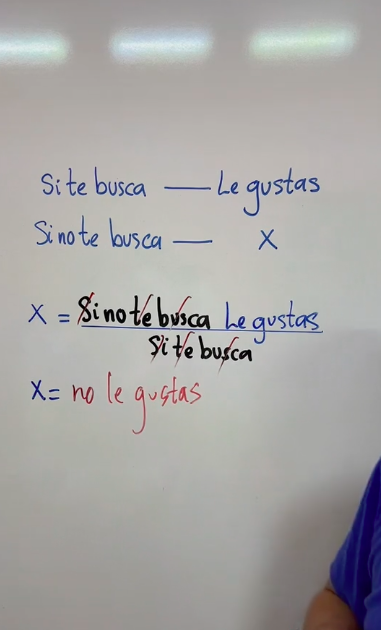 Si te busca — Le gustas
Si no te busca — X
X = Si no te busca Le gustas
Si te busca
X = no le gustas